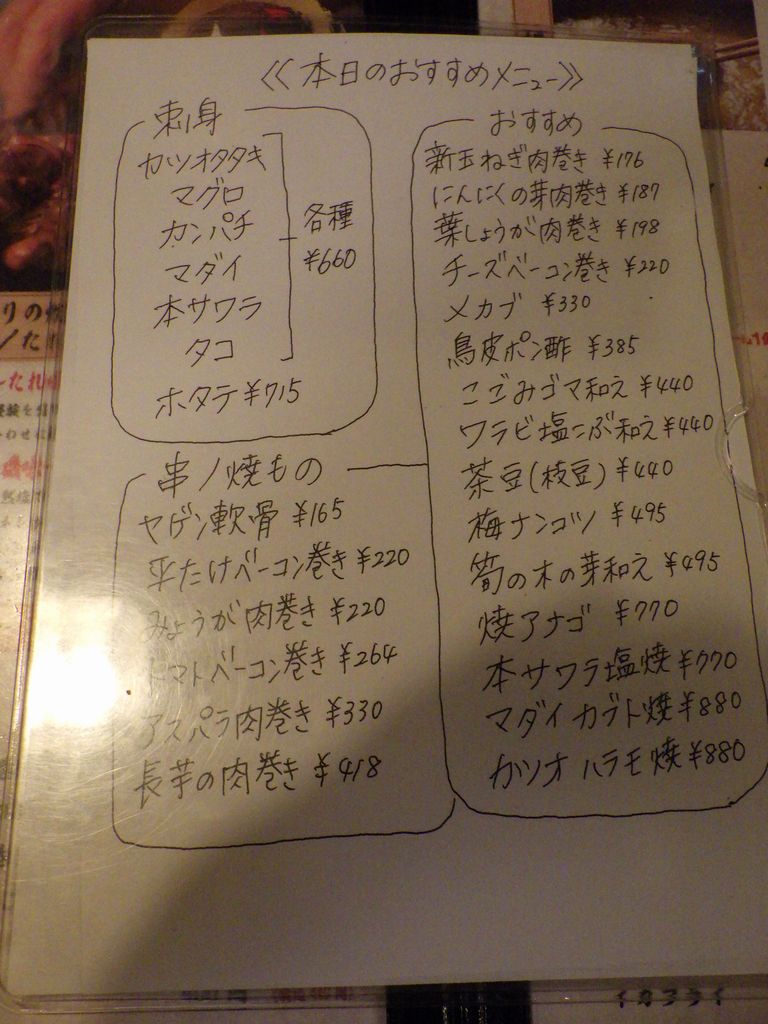 ≪本日のおすすめメニュー≫
刺身
カツオタタキ
マグロ
カンパチ
マダイ
本サワラ
タコ
各種
¥660
ホタテ ¥715
串ノ焼もの
ヤゲン軟骨 ¥165
平たけベーコン巻き ¥220
みょうが肉巻き ¥220
トマトベーコン巻き ¥264
アスパラ肉巻き ¥330
長芋の肉巻き ¥418
おすすめ
新玉ねぎ肉巻き ¥176
にんにくの芽肉巻き ¥187
葉しょうが肉巻き ¥198
チーズベーコン巻き ¥220
メカブ ¥330
鳥皮ポン酢 ¥385
こごみゴマ和え ¥440
ワラビ塩こぶ和え ¥440
茶豆(枝豆) ¥440
梅ナンコツ ¥495
筍の木の芽和え ¥495
焼アナゴ ¥770
本サワラ塩焼 ¥770
マダイカブト焼 ¥880
カツオハラモ焼 ¥880
イカフライ